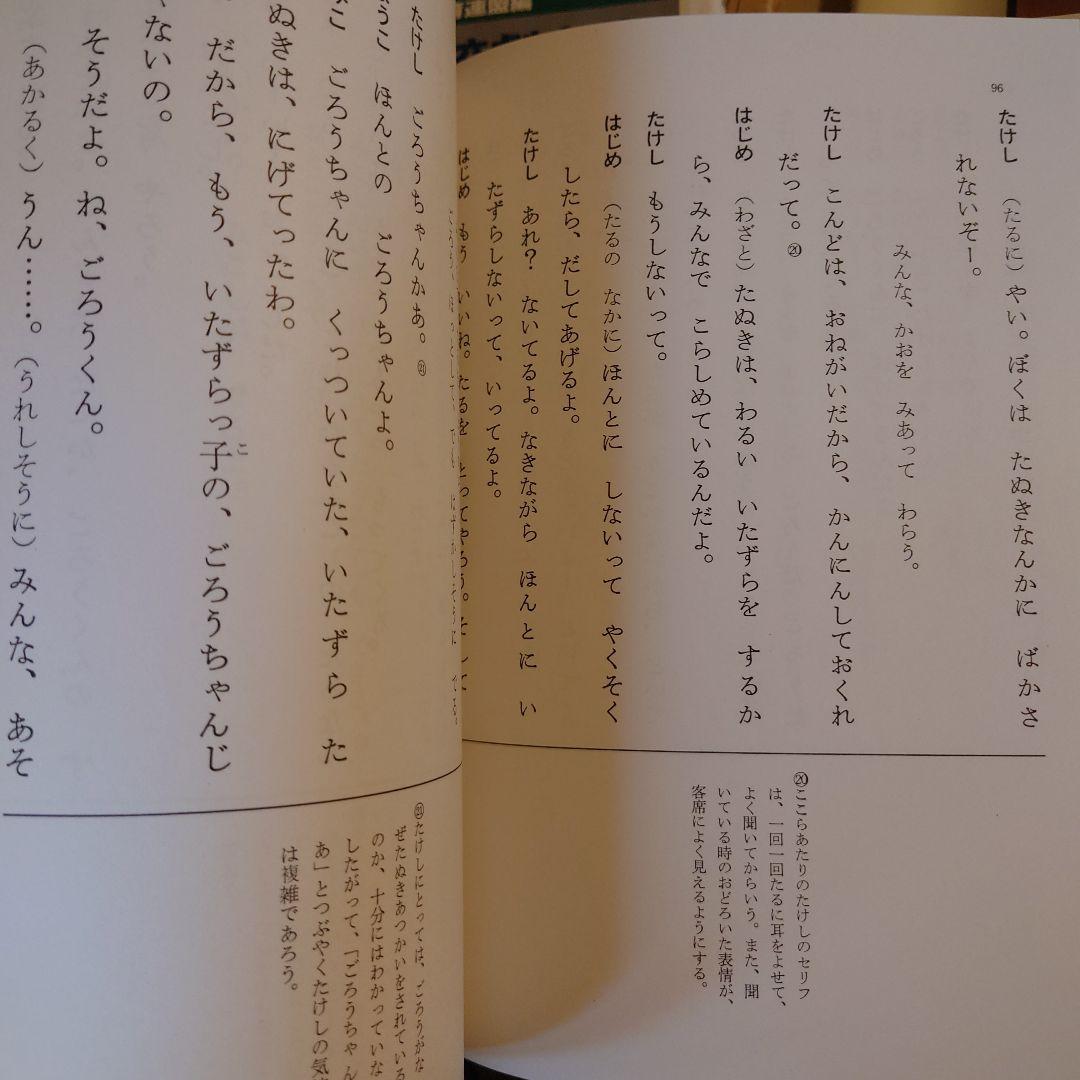 96
たけし （たるに）やい。ぼくは たぬきなんかに ばかさ
れないぞー。
みんな、かおを みあって わらう。
たけし こんどは、おねがいだから、かんにんしておくれ
だって。⑳
はじめ （わざと）たぬきは、わるい いたずらを するか
ら、みんなで こらしめているんだよ。
たけし もうしないって。
はじめ （たるの なかに）ほんとに しないって やくそく
したら、だしてあげるよ。
たけし あれ？ ないてるよ。なきながら ほんとに い
たずらしないって、いってるよ。
はじめ もう いいね。たるを とってやろう。そして
⑳ここらあたりのたけしのセリフ
は、一回一回たるに耳をよせて、
よく聞いてからいう。また、聞
いている時のおどろいた表情が、
客席によく見えるようにする。
たけし ごろうちゃんかあ。㉑
うこ ほんとの ごろうちゃんよ。
こ ごろうちゃんに くっついていた、いたずら た
ぬきは、にげてったわ。
だから、もう、いたずらっ子の、ごろうちゃんじ
こ
ないの。
そうだよ。ね、ごろうくん。
（あかるく）うん……。（うれしそうに）みんな、 あそ
㉑たけしにとっては、ごろうがな
ぜたぬきあつかいをされている
のか、十分にはわかっていな
したがって、「ごろうちゃん
あ」とつぶやくたけしの気
は複雑であろう。